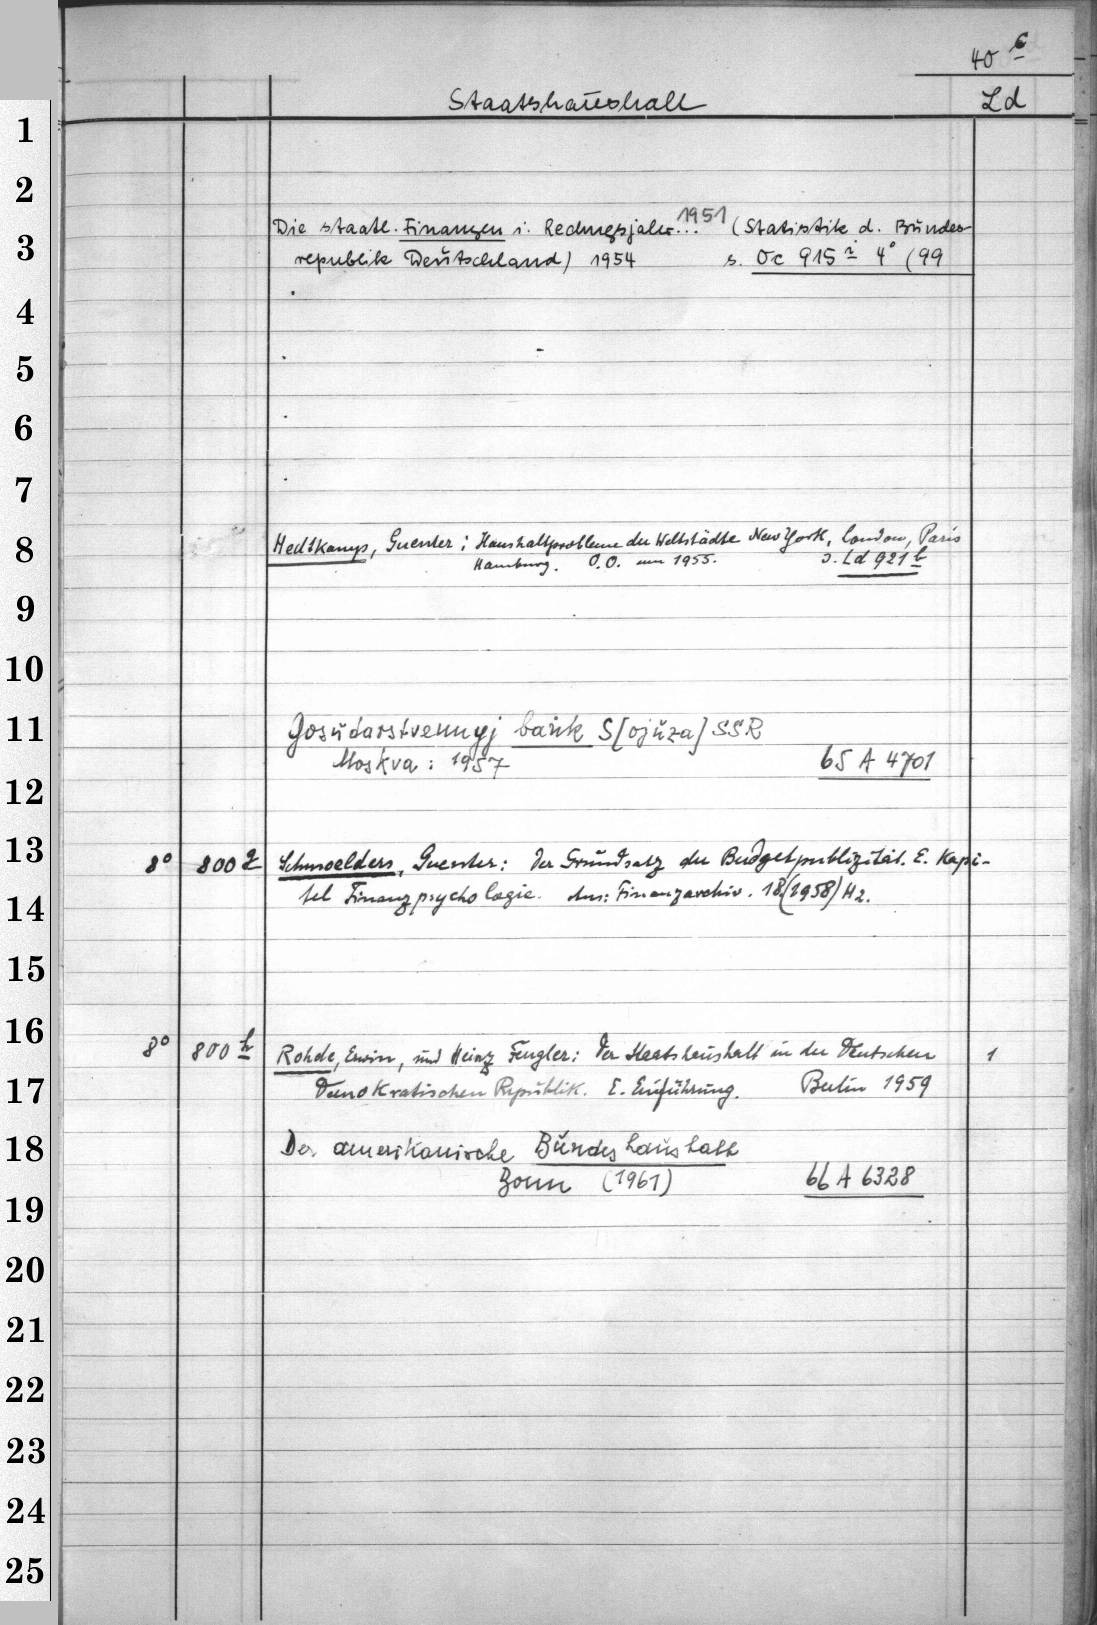 40 c
Staatshaushalt Ld
1
2
Die staatl. Finanzen i. Rechngsjahr... 1951 (Statistik d. Bundes-
3
republik Deutschland) 1954 s. Oc 915 i 4° (99
4
5
6
7
8
Hedtkamp, Guenter: Haushaltprobleme der Weltstädte New York, London, Paris
Hamburg. O.O. um 1955. s. Ld 921 b
9
10
11
Gosudarstvennyj bank S[ojuza] SSR
Moskva: 1957 65 A 4701
12
13
8° 800 g Schmoelders, Guenter: Der Grundsatz der Budgetpublizität. E. Kapi-
tel Finanzpsychologie. Aus: Finanzarchiv. 18 (1958) H 2.
14
15
16
8° 800 h Rohde, Erwin, und Heinz Fengler: Der Staatshaushalt in der Deutschen 1
17
Demokratischen Republik. E. Einführung. Berlin 1959
18
Der amerikanische Bundeshaushalt
Bonn (1961) 66 A 6328
19
20
21
22
23
24
25